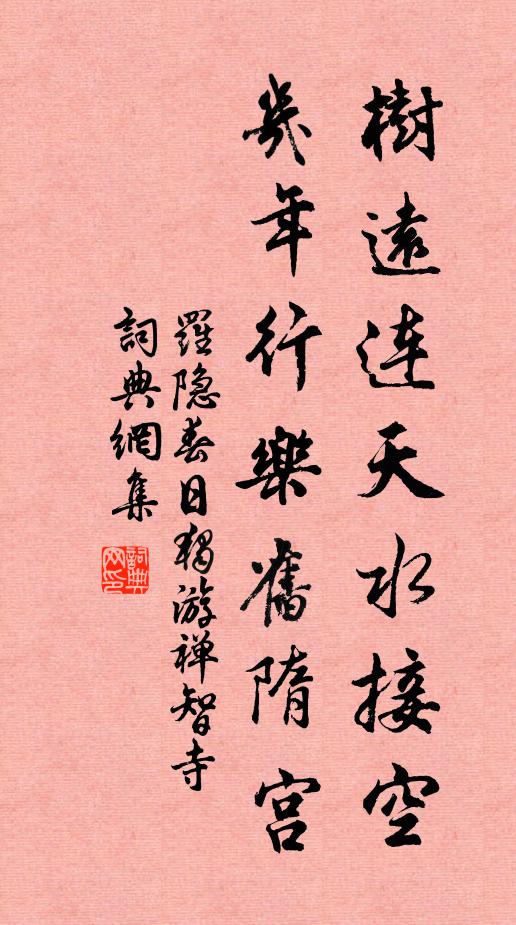 樹遠連天水接空
幾年行樂舊隋宮
羅隱春日獨游禅智寺
詞典網集
詞典网印